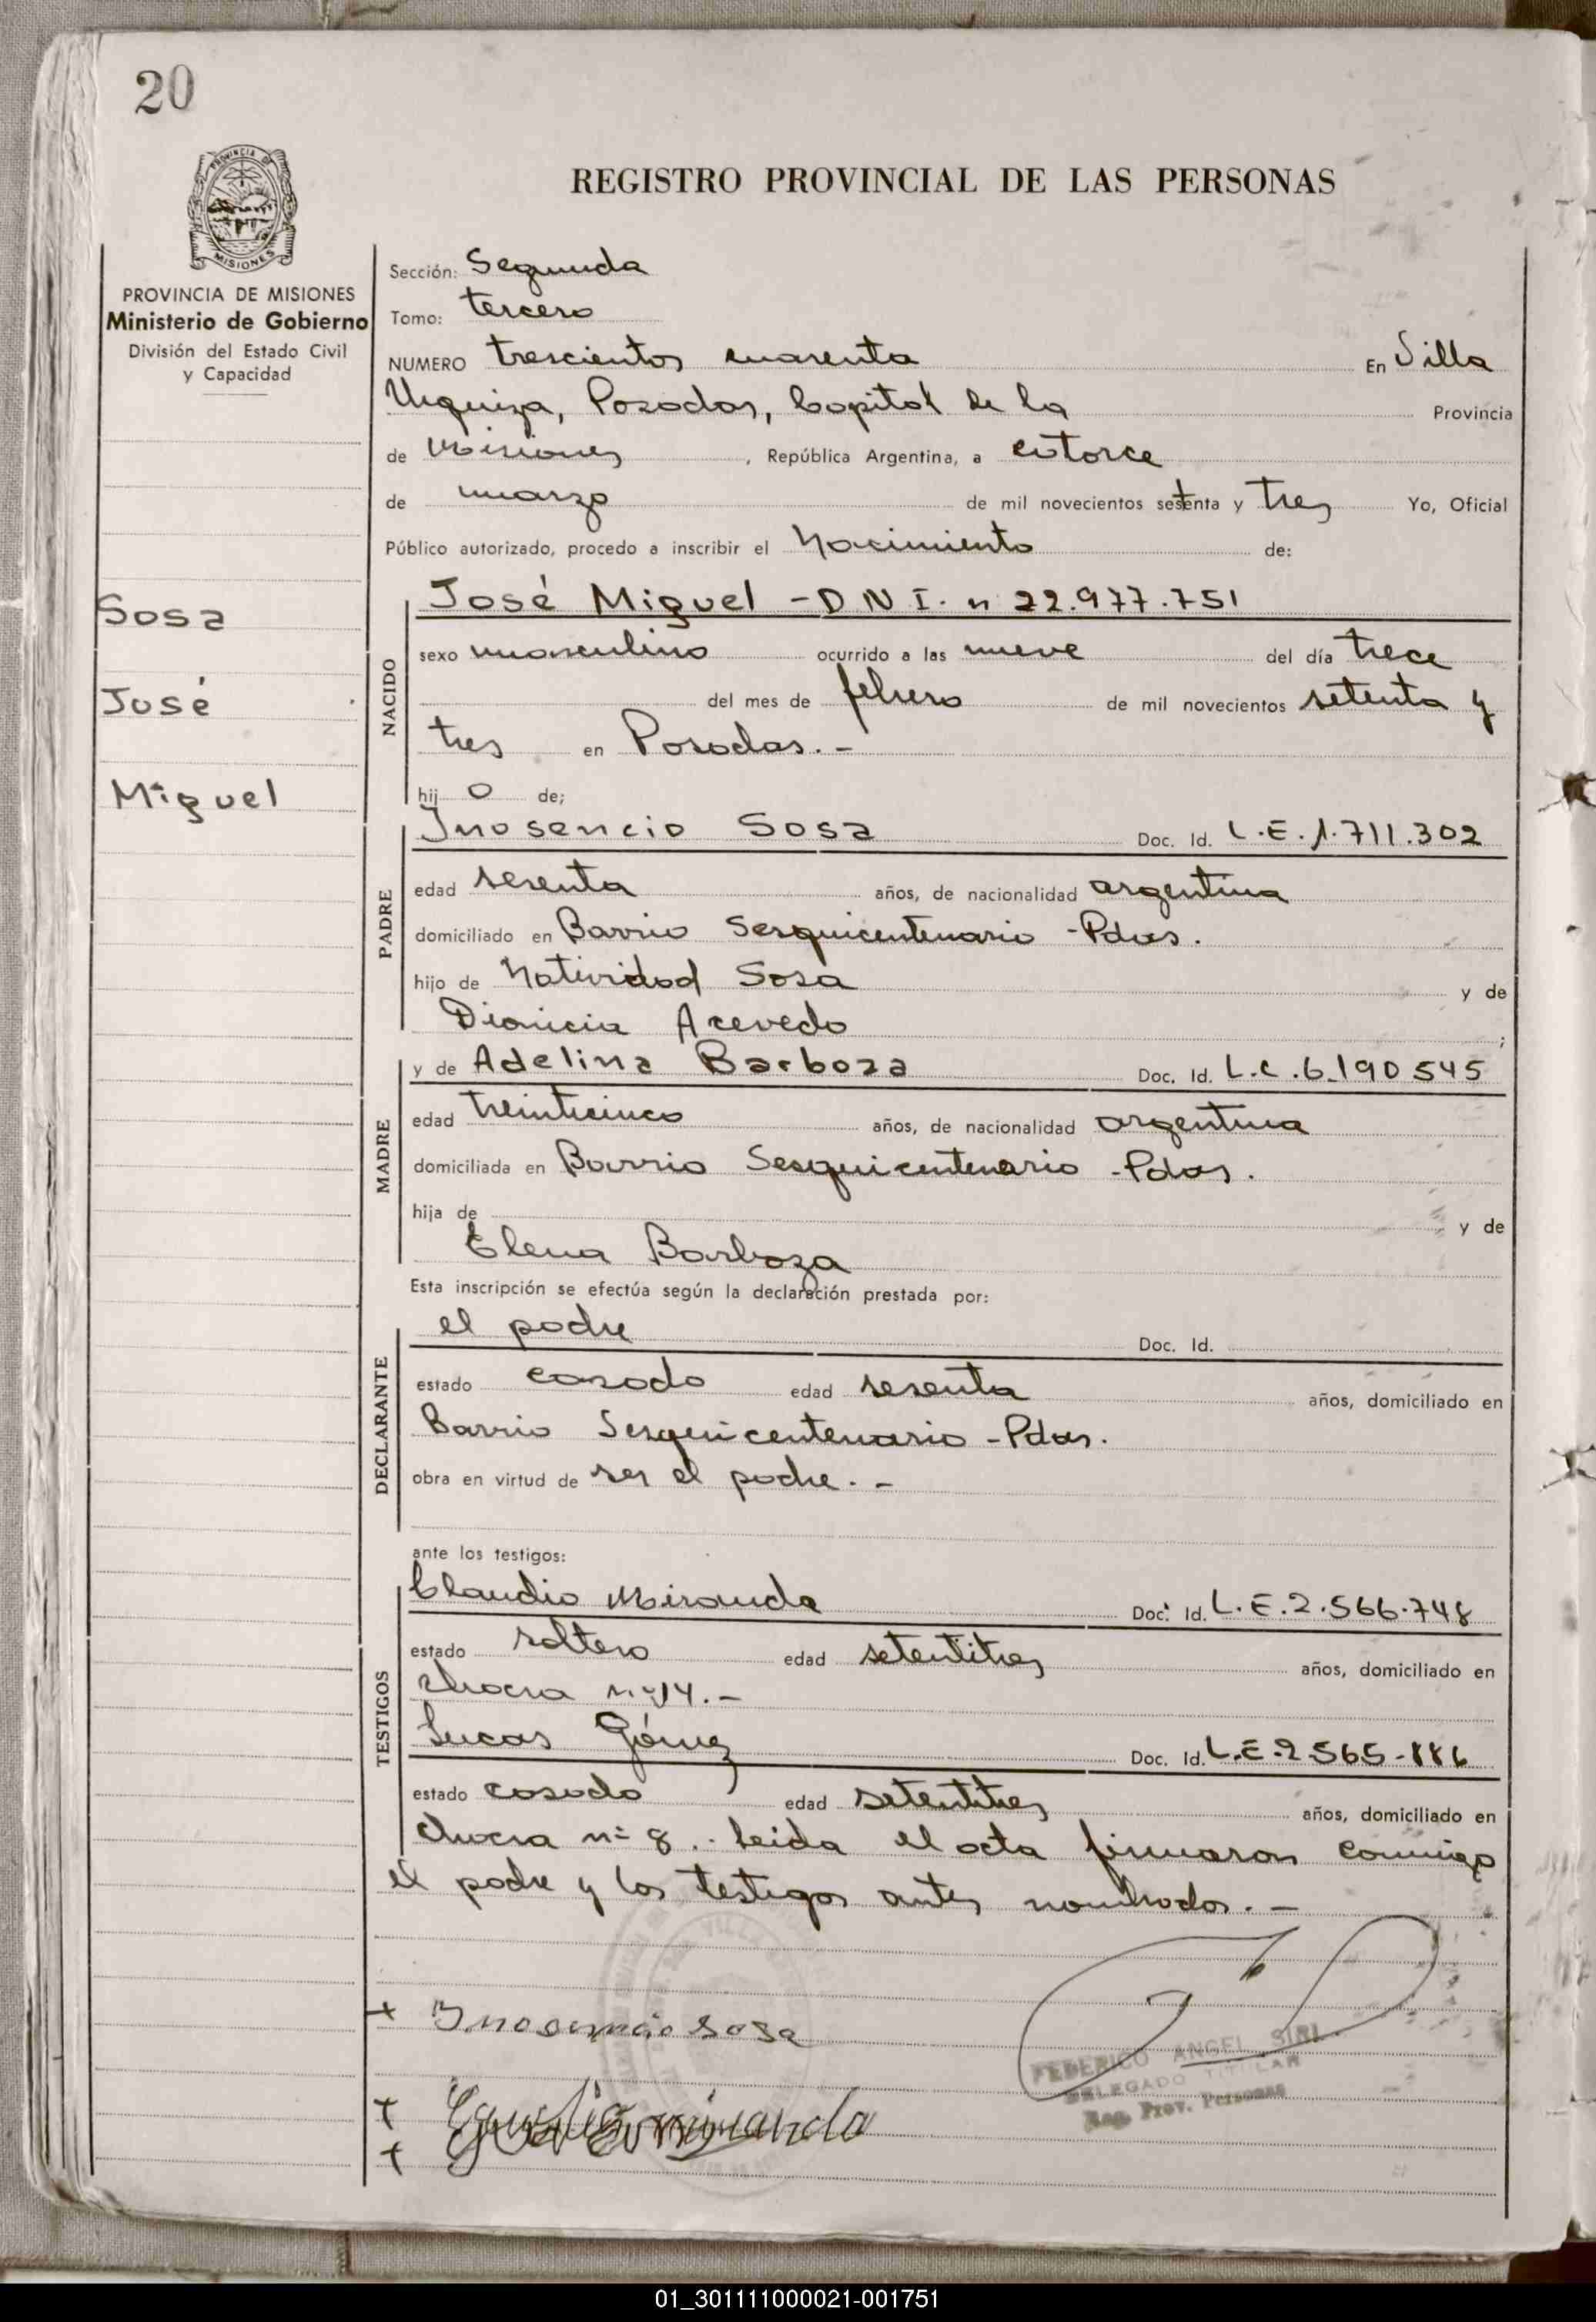 20
PROVINCIA DE
MISIONES
REGISTRO PROVINCIAL DE LAS PERSONAS
PROVINCIA DE MISIONES
Ministerio de Gobierno
División del Estado Civil
y Capacidad
Sosa
José
Miguel
Sección: Segunda
Tomo: tercero
NUMERO trescientos cuarenta En Villa
Urquiza, Posadas, Capital de la Provincia
de Misiones, República Argentina, a catorce
de marzo de mil novecientos setenta y tres Yo, Oficial
Público autorizado, procedo a inscribir el Nacimiento de:
NACIDO
José Miguel - D N I. n 22.977.751
sexo masculino ocurrido a las nueve del día trece
del mes de febrero de mil novecientos setenta y
tres en Posadas. -
hijo de;
PADRE
Inosencio Sosa Doc. Id. L.E. 1.711.302
edad sesenta años, de nacionalidad argentina
domiciliado en Barrio Sesquicentenario - Pdas.
hijo de Natividad Sosa y de
Dionicia Acevedo ;
MADRE
y de Adelina Barboza Doc. Id. L.C. 6.190 545
edad treinticinco años, de nacionalidad argentina
domiciliada en Barrio Sesquicentenario - Pdas.
hija de y de
Elena Barboza
Esta inscripción se efectúa según la declaración prestada por:
DECLARANTE
el padre Doc. Id.
estado casado edad sesenta años, domiciliado en
Barrio Sesquicentenario - Pdas.
obra en virtud de ser el padre. -
ante los testigos:
TESTIGOS
Claudio Miranda Doc. Id. L.E. 2.566.748
estado soltero edad setentitres años, domiciliado en
chacra nº 14. -
Lucas Gómez Doc. Id. L.E. 2.565-886
estado casado edad setentitres años, domiciliado en
chacra nº 8. - Leida el acta firmaron conmigo
el padre y los testigos antes nombrados. -
Inosencio Sosa
FEDERICO ANGEL SIRI
DELEGADO TITULAR
Reg. Prov. Personas
miranda
01_301111000021-001751